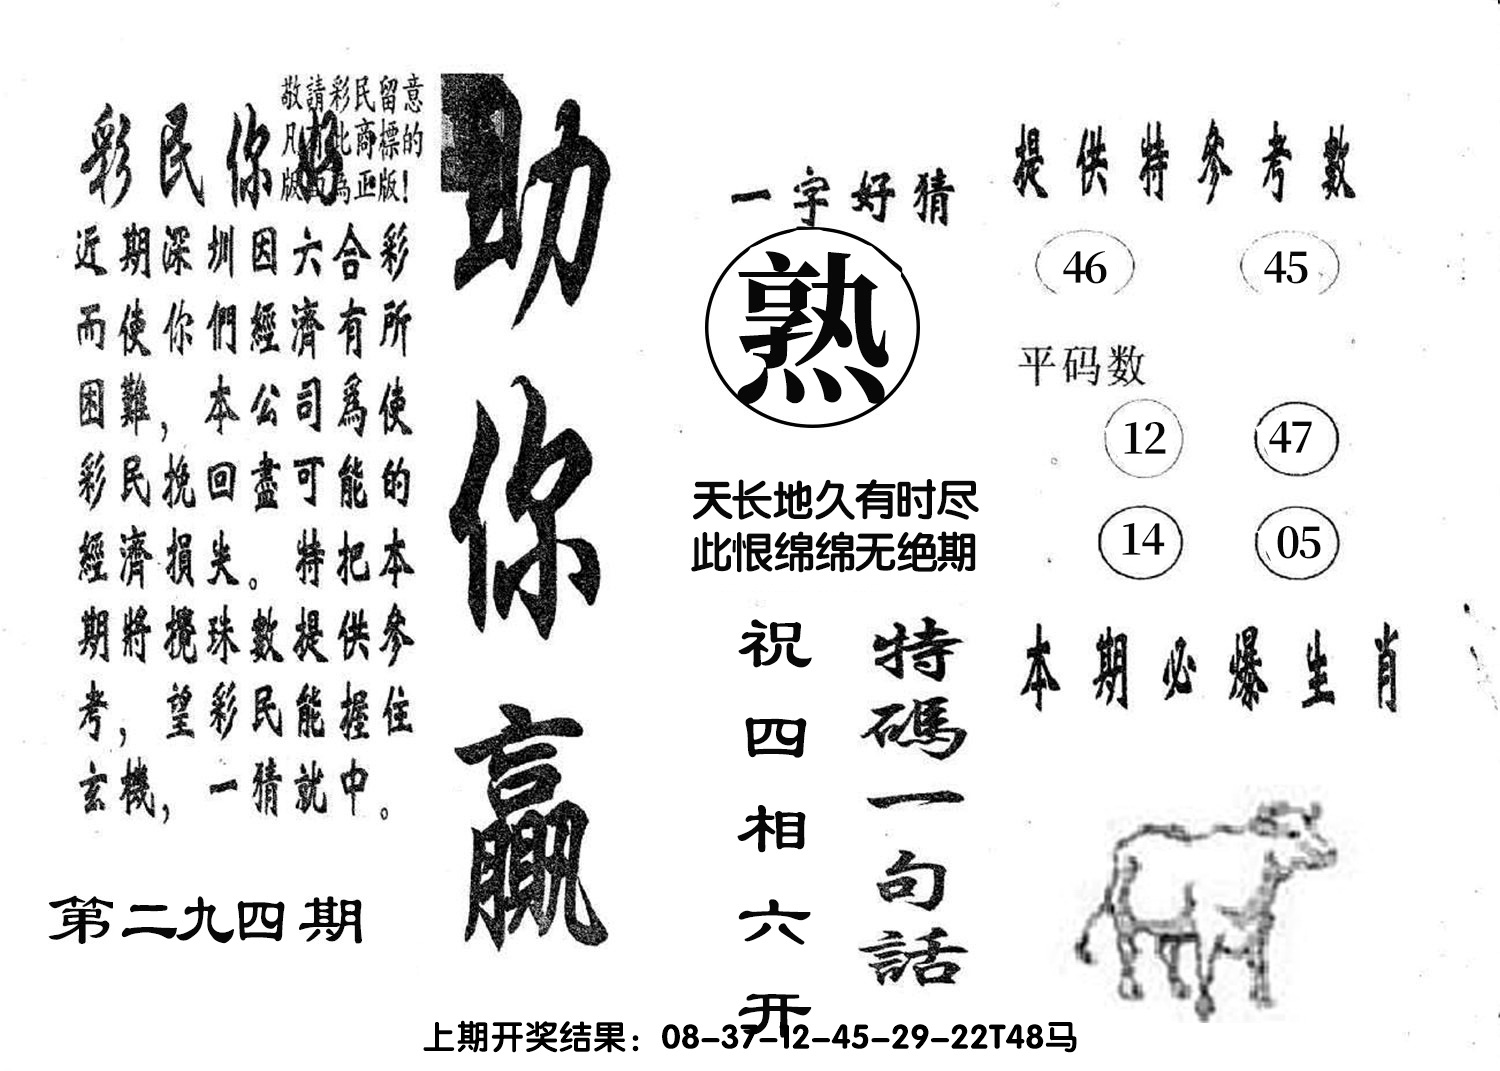 敬請彩民留意
凡有此商標的
版面為正版!
彩民你好
近期深圳因六合彩
而使你們經濟有所
困難，本公司爲使
彩民挽回盡可能的
經濟損失。特把本
期將攪珠數提供參
考，望彩民能握住
玄機，一猜就中。
第二九四期
助你贏
一字好猜
熟
天长地久有时尽
此恨绵绵无绝期
特碼一句話
祝四相六开
提供特參考數
46 45
平码数
12 47
14 05
本期必爆生肖
上期开奖结果：08-37-12-45-29-22T48马